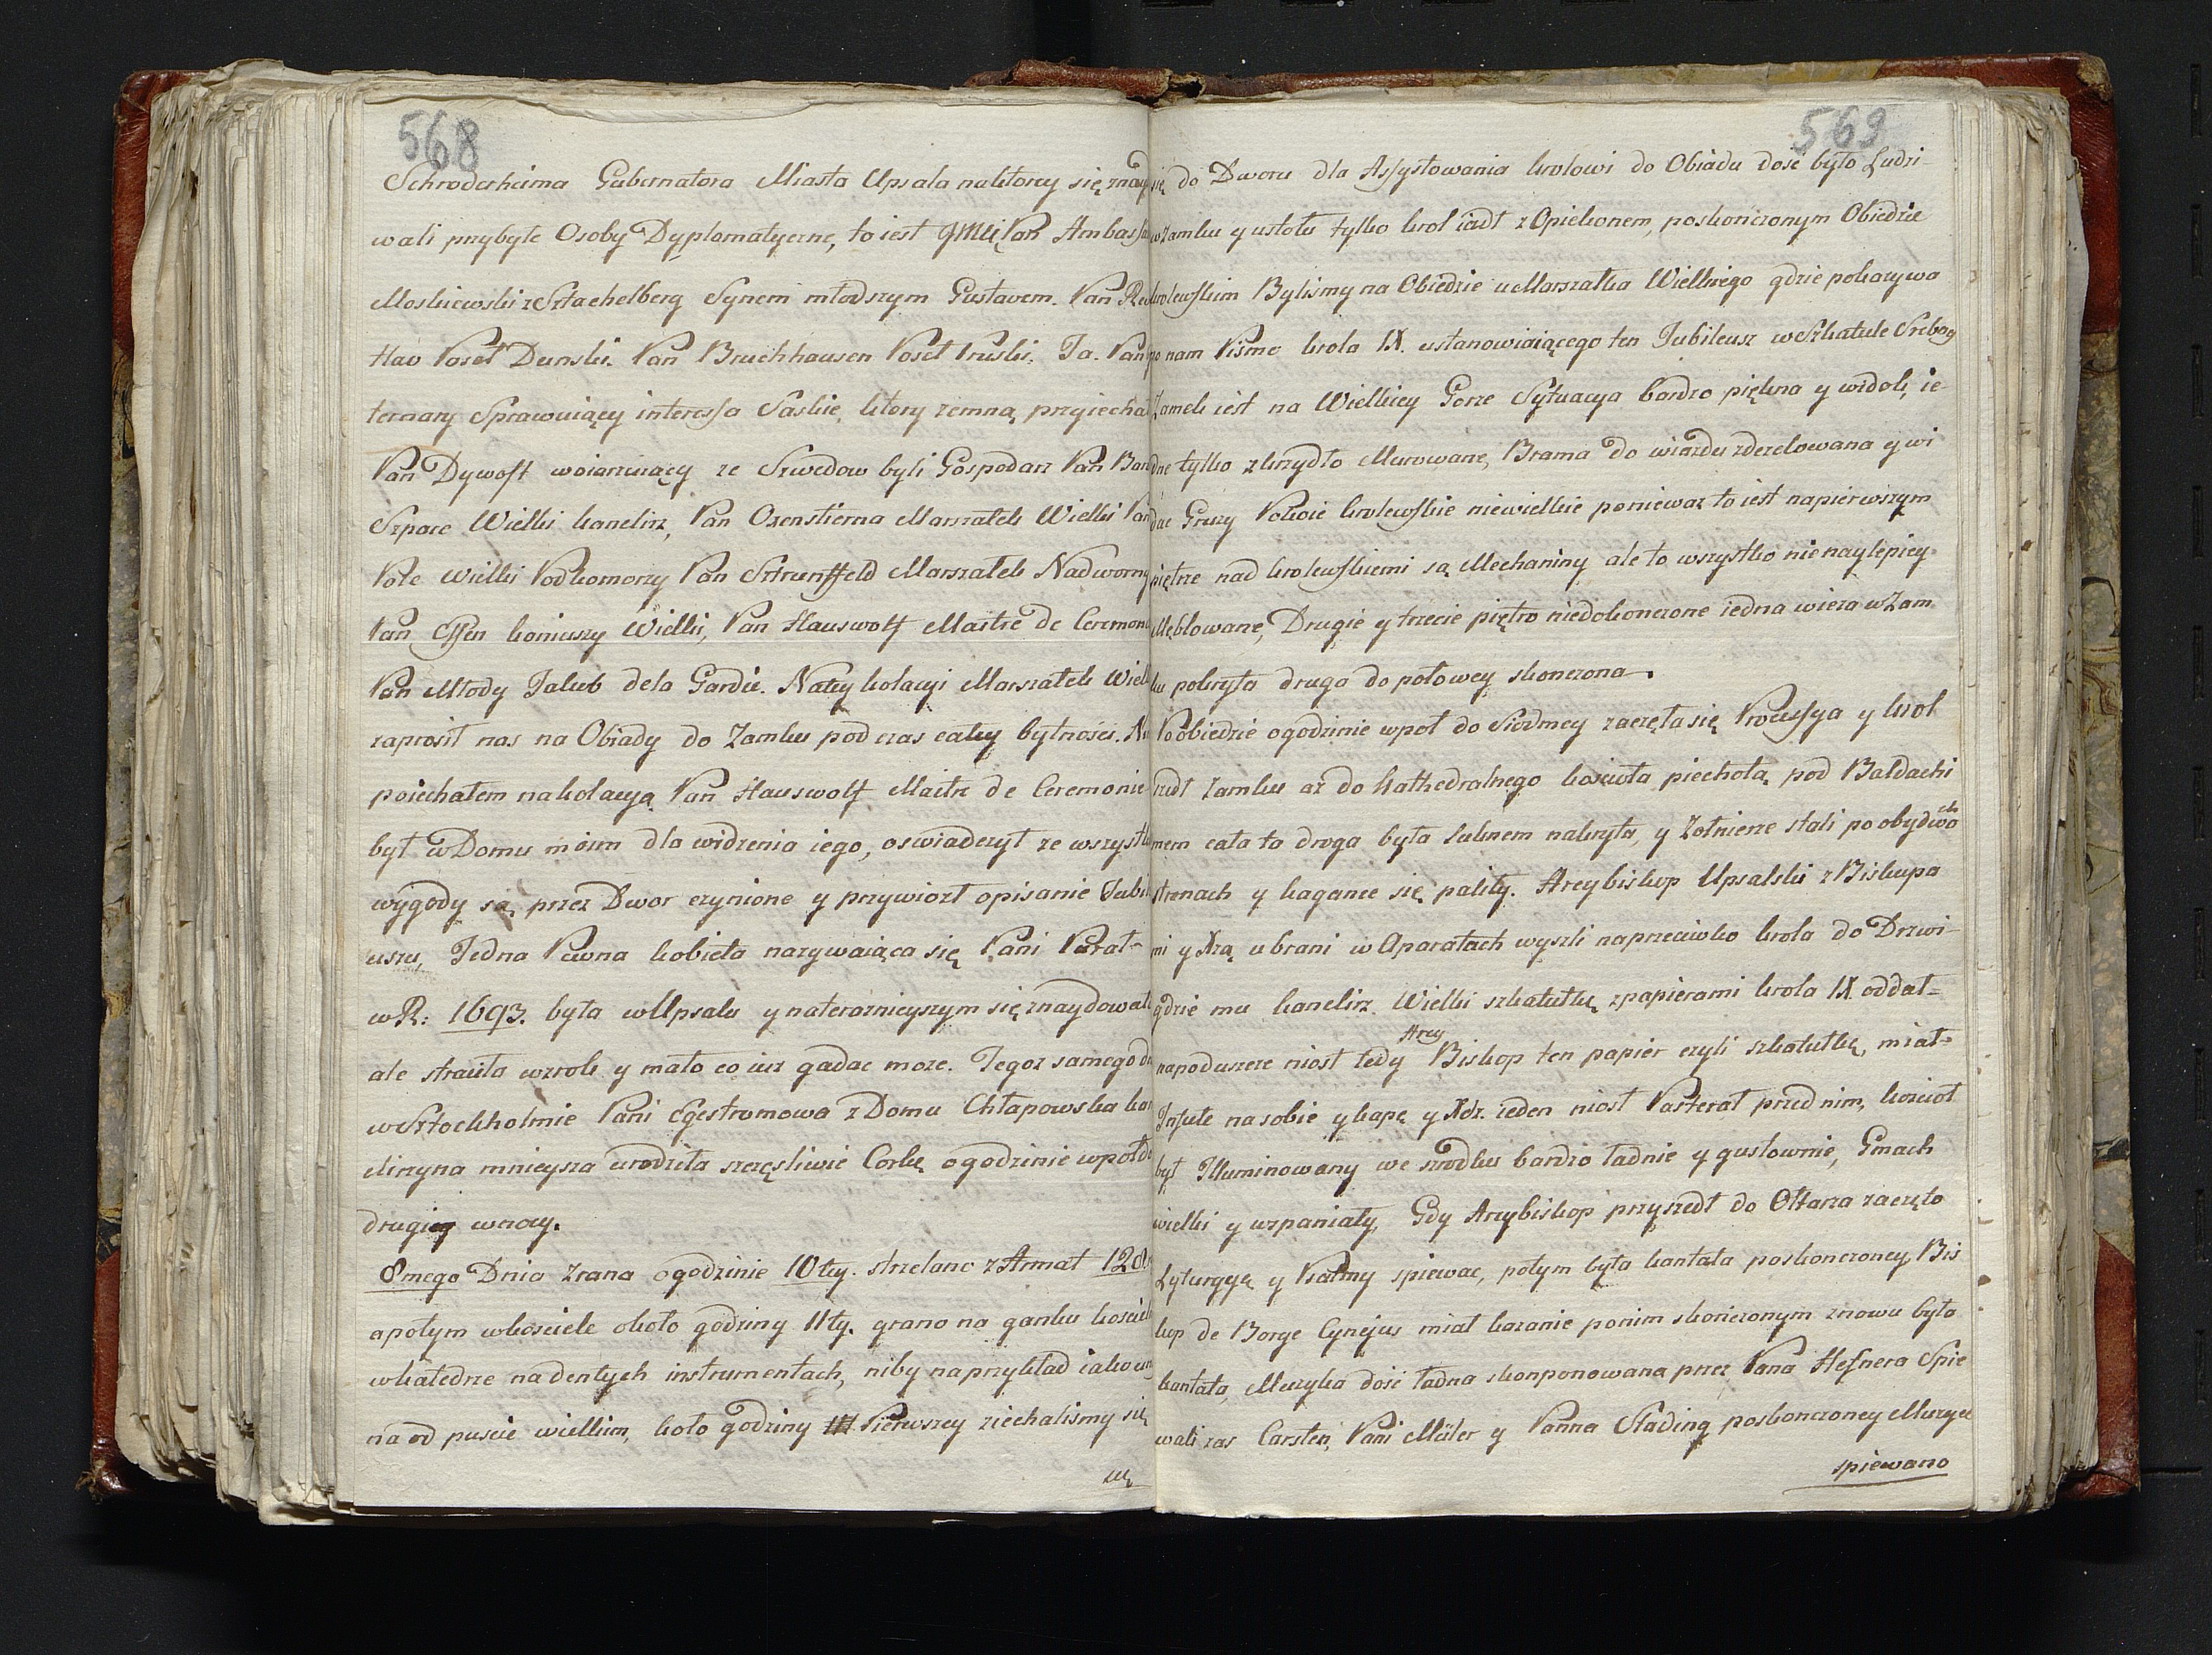 568
Schroderheima Gubernatora Miasta Upsala naktorey się znay
wali przybyłe Osoby Dyplomatyczne, to iest JMći Pan Ambassa
Moskiewski z Sztachelberg Synem młodszym Gustavem. Pan Re
tlav Poseł Dunski. Pan Bruchhausen Poseł Pruski. Ja. Pan
ternary Sprawuiący interessa Saskie, ktory zemną przyiechał
Pan Dywoff woiazuiący ze Szwedow byli Gospodarz Pan Ban
Szpare Wielki kanclirz, Pan Oxenstierna Marszałek Wielki Pan
Pole wielki Podkomorzy Pan Sztrenffeld Marszałek Nadworny
Pan Essen koniuszy Wielki, Pan Hauswolf Maitre de Ceremoni
Pan Młody Jakub dela Gardie. Natey kolacyi Marszałek Wiel
zaprosił nas na Obiady do Zamku pod czas całey bytnosci. Ni
poiechałem na kolacyą Pan Hauswolf Maitre de Ceremonie
był w Domu moim dla widzenia iego, oswiadczył ze wszystk
wygody są przez Dwor czynione y przywiozł opisanie Jubi
uszu, Jedna Pewna kobieta nazywaiąca się Pani Parat-
w R: 1693. była w Upsalu y nateraznieyszym się znaydowała
ale straciła wzrok y mało co iuz gadac moze. Tegoz samego d
w Sztockholmie Pani Egestromowa z Domu Chłapowska kan
clirzyna mnieysza urodziła szczęsliwie Corkę o godzinie wpoł d
drugiey wnocy.
8mego Dnia Zrana o godzinie 10tey. strzelano z Armat 128
a potym wkosciele około godziny 11ty. grano na ganku koscie
wkatedrze nadentych instrumentach, niby naprzykład iako u
na od puscie wielkim, koło godziny Pierwszey ziechalismy się
się
569
się do Dworu dla Assystowania krolowi do Obiadu dosc było Ludzi
wZamku y ustołu tylko krol iadł z Opiekonem, poskonczonym Obiedzie
krolewskim Bylismy na Obiedzie u Marszałka Wielkiego gdzie pokazywa
no nam Pismo krola IX. ustanowiaiącego ten Jubileusz w Szkatule Srebney
Zamek iest na Wielkiey Gorze Sytuacya bardzo piękna y widok, ie-
dne tylko skrzydło Murowane, Brama do wiazdu zdezelowana y wi
dac Gruzy Pokoie krolewskie niewielkie poniewaz to iest napierwszym
piętrze nad krolewskiemi są Mechaniny ale to wszystko nienaylepiey
Meblowane, Drugie y trzecie piętro niedokonczone iedna wieza w Zam
ku pokryta druga do połowey skonczona.
Po obiedzie o godzinie wpoł do Siodmey zaczęła się Processya y krol
szedł Zamku az do Kathedralnego koscioła piechotą pod Baldachi
mem cała ta droga była suknem nakryta, y Zołnierze stali po obydwoch
stronach y kagance się paliły. Arcybiskop Upsalski z Biskupa
mi y Xzą ubrani w Aparatach wyszli naprzeciwko krola do Drzwi-
gdzie mu kanclirz Wielki szkatułkę zpapierami krola IX. oddał-
napoduszce niosł tedy Arcy Biskop ten papier czyli szkatułkę, miał-
Infułe na sobie y kapę y Xdz. ieden niosł Pasterał przed nim, koscioł
był Jlluminowany we srodku bardzo ładnie y gustownie, Gmach
wielki y wspaniały, Gdy Arcybiskop przyszedł do Ołtarza zaczęto
Lyturgyą y Psalmy spiewac, potym była kantata poskonczoney Bis
kop de Borge Cynejus miał kazanie ponim skonczonym znowu była
kantata, Muzyka dosc ładna skonponowana przez Pana Hefnera Spie
wali zas Carsten, Pani Müler y Panna Stading poskonczoney Muzyce
spiewano